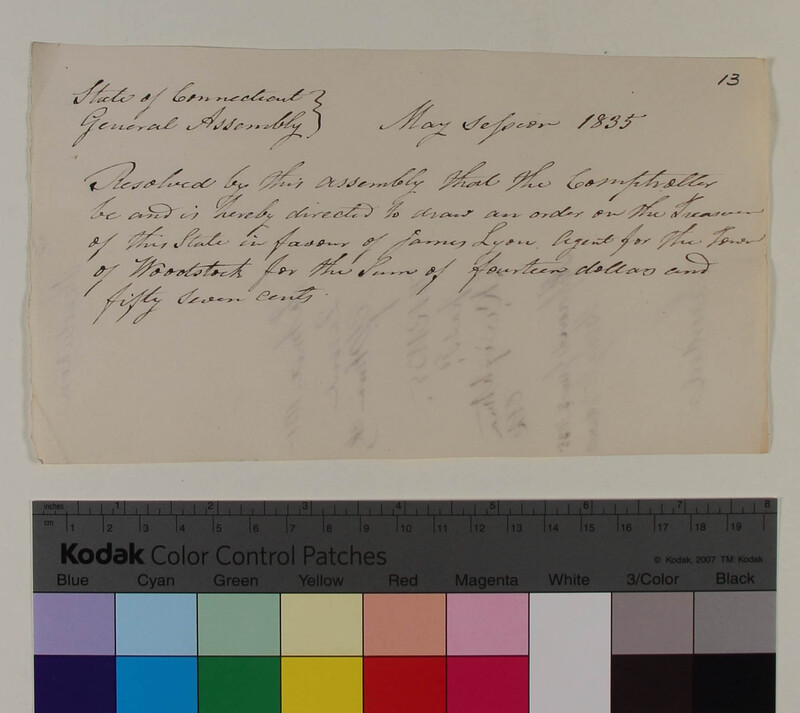 13
State of Connecticut }
General Assembly } May session 1835
Resolved by this assembly that the Comptroller
be and is hereby directed to draw an order on the Treasurer
of this State in favour of James Lyon Agent for the Town
of Woodstock for the Sum of fourteen dollars and
fifty seven cents.
inches 1 2 3 4 5 6 7 8
cm 1 2 3 4 5 6 7 8 9 10 11 12 13 14 15 16 17 18 19
Kodak Color Control Patches
© Kodak, 2007 TM: Kodak
Blue Cyan Green Yellow Red Magenta White 3/Color Black